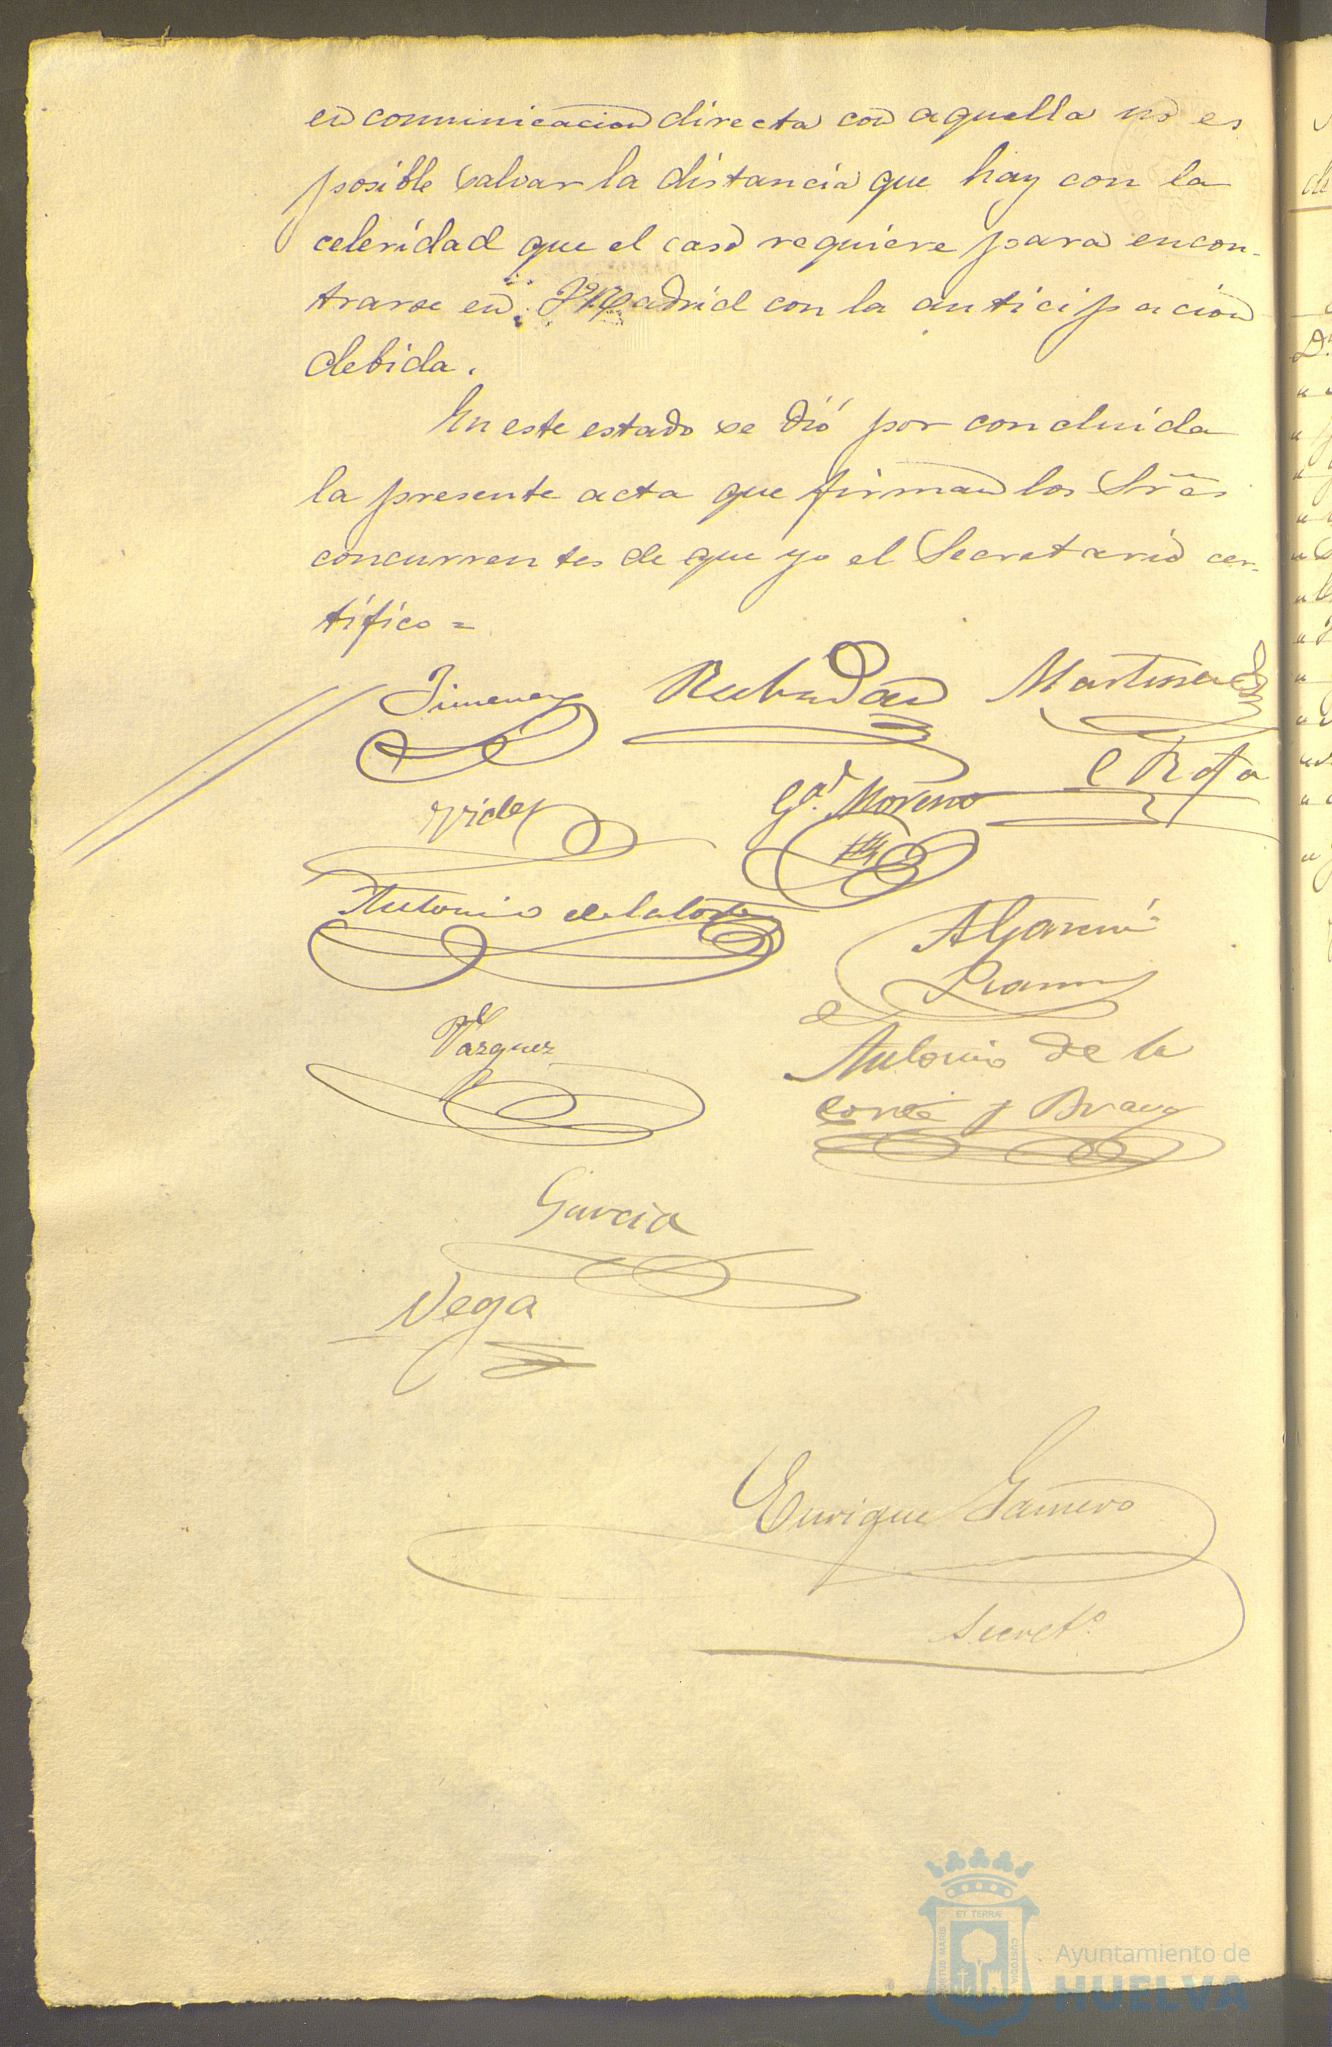 en comunicacion directa con aquella no es
posible salvar la distancia que hay con la
celeridad que el caso requiere para encon-
trarse en Madrid con la anticipacion
debida.
En este estado se dió por concluida
la presente acta que firman los Sres
concurrentes de que yo el Secretario cer-
tífico =
Jimenez Martinez
G.ª Moreno
Antonio de la Corte
A Garcia
Ramos
Vazquez
Antonio de la
Corte y Bravo
Garcia
Vega
Enrique Gamero
Secret.º
Ayuntamiento de
HUELVA